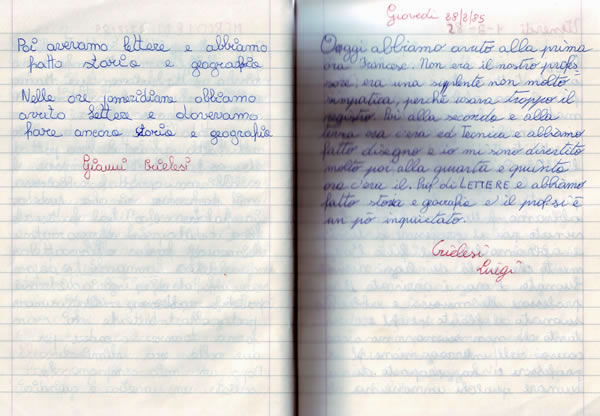 Poi avevamo lettere e abbiamo
fatto storia e geografia
Nelle ore pomeridiane abbiamo
avuto lettere e dovevamo
fare ancora storia e geografia
Gianni Crielesi
Giovedì 28/2/85
Oaggi abbiamo avuto alla prima
ora francese. Non era il nostro profes-
sore; era una supplente non molto
simpatica, perché usava troppo il
registro. Poi alla seconda e alla
terza ora c'era ed Tecnica e abbiamo
fatto disegno e io mi sono divertito
molto poi alla quarta e quinta
ora c'era il Prof di LETTERE e abbiamo
fatto storia e e il prof. si è
un pò inquietato.
Crielesi
Luigi